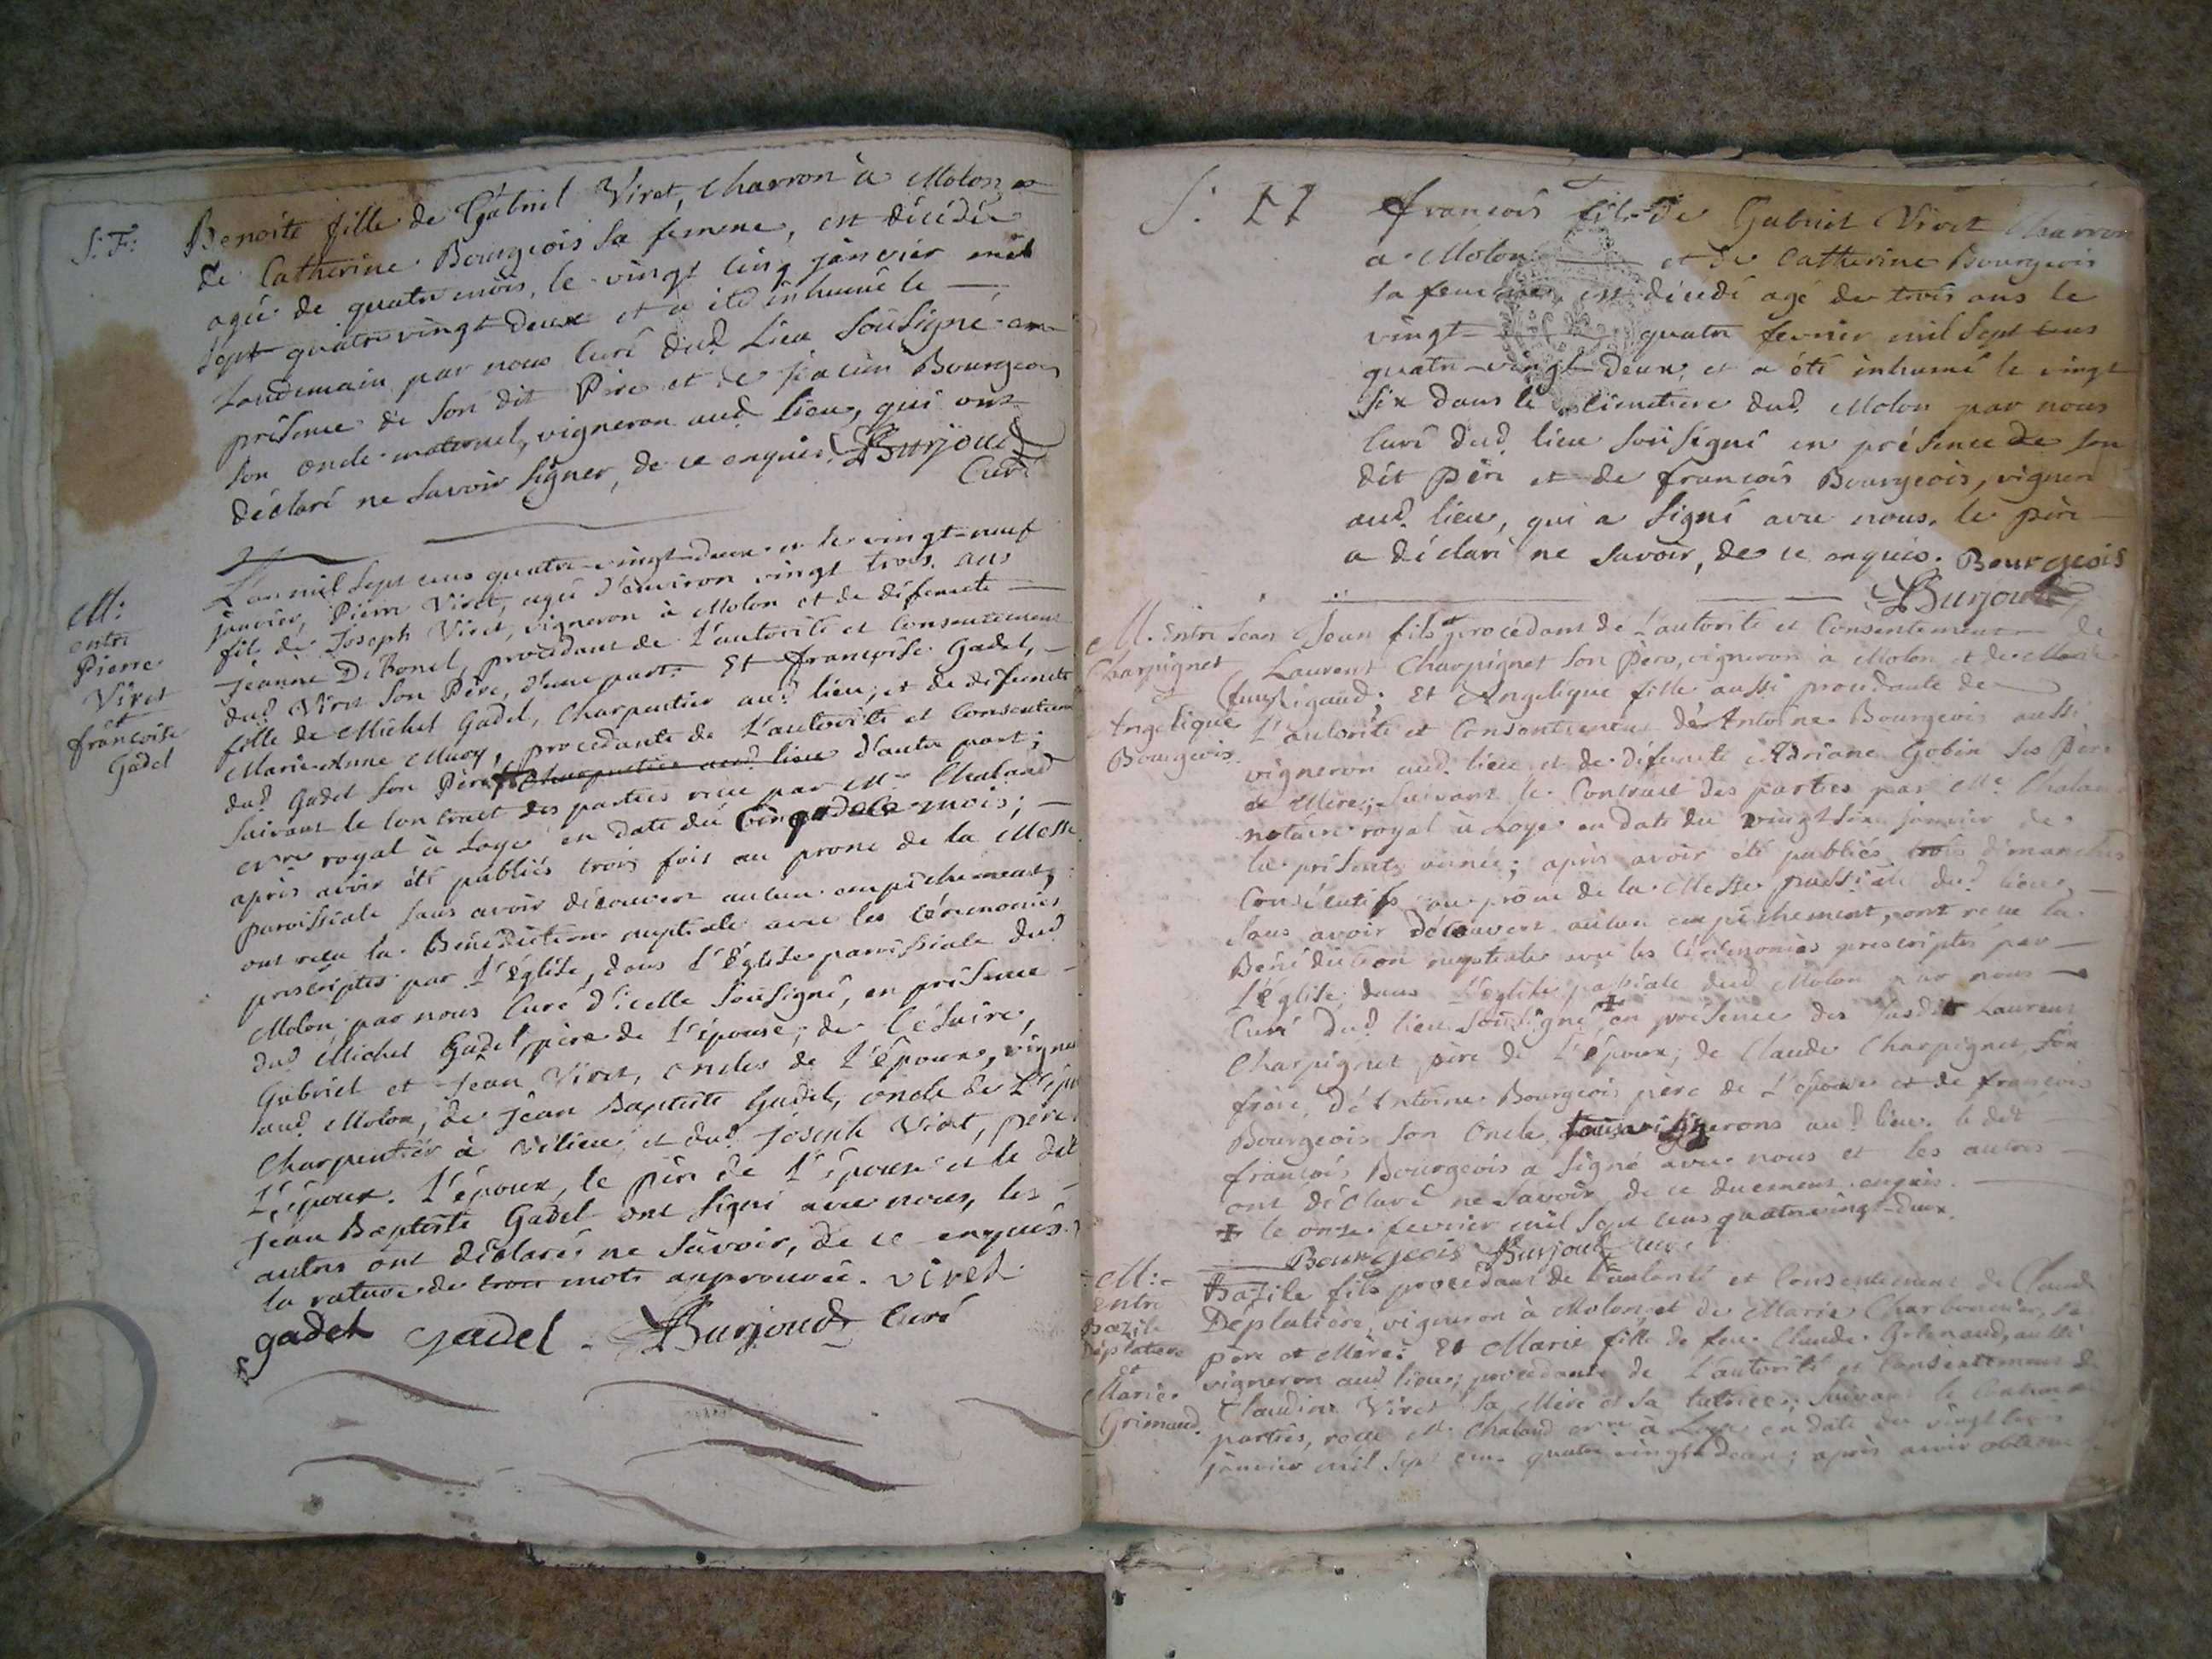 S. F:
Benoite fille de Gabriel Viret, charron à Molon et
de Catherine Bourgeois sa femme, est décédée
agée de quatre mois, le vingt cinq janvier mil
sept quatre vingt deux et a été inhumé le
landemain par nous Curé dud. Lieu Soûsigné en
présence de son dit Père et de Bourgeois
son oncle maternel, vigneron aud. lieu, qui ont
déclaré ne savoir signer, de ce enquis. Burjoud
Curé
M:
entre
Pierre
Viret
et
françoise
Gadel
L'an mil sept cens quatre-vingt-deux et le vingt-neuf
janvier, Pierre Viret, agé d'environ vingt trois ans
fils de Joseph Viret, vigneron à Molon et de défunte
Jeanne , procédant de l'autorité et Consentement
dud. Viret son Père, d'une part. Et françoise Gadel,
fille de Michel Gadel, Charpentier aud. lieu, et de défunte
Marie-Anne , procédante de L'autorité et Consentem
dud. Gadel son Père Charpentier aud. lieu d'autre part;
suivant le Contract des parties recu par Me Chaland
royal à Loye en date du mois;
après avoir été publiés trois fois au prone de la Messe
paroissiale sans avoir découvert aucun empêchement,
ont recu la Bénédiction nuptiale avec les Cérémonies
prescriptes par L'église, dans L'Eglise paroissiale dud.
Molon par nous Curé d'icelle soûsigné, en présence
dud. Michel Gadel, père de L'épouse, de Césaire,
Gabriel et Jean Viret, oncles de L'époux, vigne
aud. Molon, de Jean Baptiste Gadel, oncle de L'épou
Charpentier à Vilieu, et dud. Joseph Viret, père
L'époux. L'époux, le père de L'épouse et le dit
Jean Baptiste Gadel ont signé avec nous, les
autres ont déclarés ne savoir, de ce enquis.
la rature de trois mots approuvée. Viret
gadel gadel Burjoud Curé
S. françois fils de Gabriel Viret Charron
à Molon et de Catherine Bourgeois
sa femme, est décédé agé de trois ans le
vingt-quatre fevrier mil sept cens
quatre-vingt-deux, et a été inhumé le vingt
six dans le Cimetiere dud. Molon par nous
Curé dud. lieu soûsigné en présence de son
dit Père et de françois Bourgeois, vigneron
aud. lieu, qui a signé avec nous, le père
a déclaré ne savoir, de ce enquis. Bourgeois
Burjoud
M. Entre Jean
Charpignet
et
Angelique
Bourgeois.
Jean fils procédant de L'autorité et Consentement de
Laurent Charpignet son Père, vigneron à Molon et de
Rigaud; Et Angelique fille aussi procédante de
L'autorité et Consentement d'Antoine Bourgeois aussi
vigneron aud. lieu et de défunte Adriane Gobin ses Père
et Mère; suivant le Contract des parties par Me Chaland
notaire royal à Loye en date du vingt six janvier de
la présente année; après avoir été publiés trois dimanches
Consécutifs au prone de la Messe dud. lieu,
sans avoir découvert aucun empêchement, ont recu la
Bénédiction nuptiale avec les Cérémonies prescriptes par
L'église, dans L'église dud. Molon par nous
Curé dud. lieu soûsigné + en présence des susdit Laurent
Charpignet père de L'époux; de Claude Charpignet, son
frère, d'Antoine Bourgeois père de L'épouse et de françois
Bourgeois son Oncle, vignerons aud. lieu. le dit
françois Bourgeois a signé avec nous et les autres
ont déclaré ne savoir, de ce duement enquis.
+ le onze fevrier mil sept cens quatre vingt-deux.
Bourgeois Burjoud Curé
M:
Entre
Bazile
Déplatière
et
Marie
Grimaud.
Bazile fils procédant de L'autorité et Consentement de Claude
Déplatière, vigneron à Molon, et de Marie Charbonnier, ses
père et Mère. Et Marie fille de feu Claude aussi
vigneron aud. lieu; procédante de L'autorité et Consentement de
Claudine Viret sa Mère et sa tutrice; suivant le Contract
parties, recu Me Chaland à Loye en date du vingt trois
janvier mil sept cens quatre vingt deux; après avoir obtenu